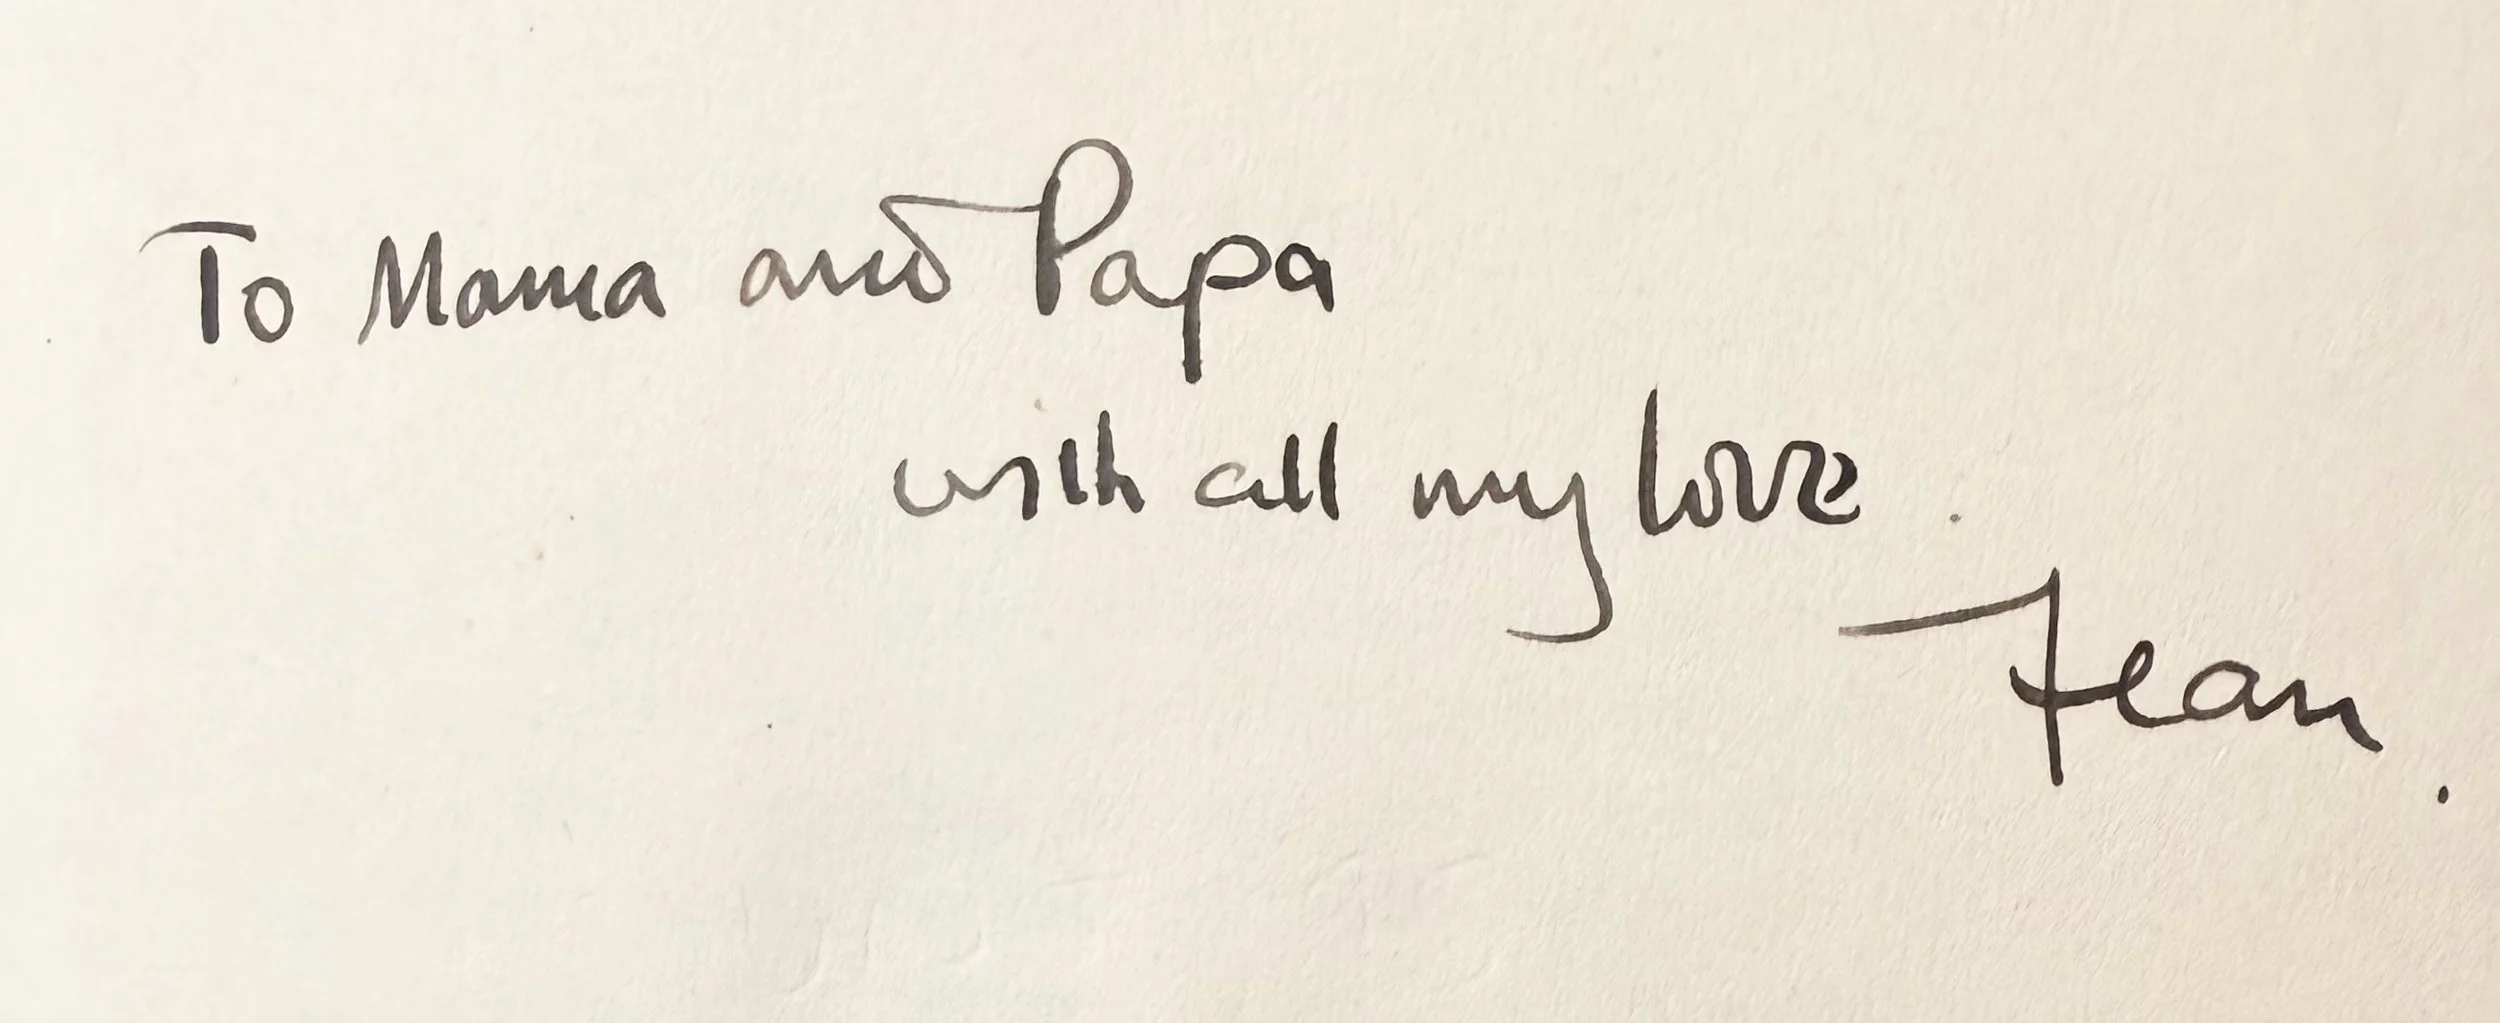 To Mama and Papa
with all my love.
Jean.